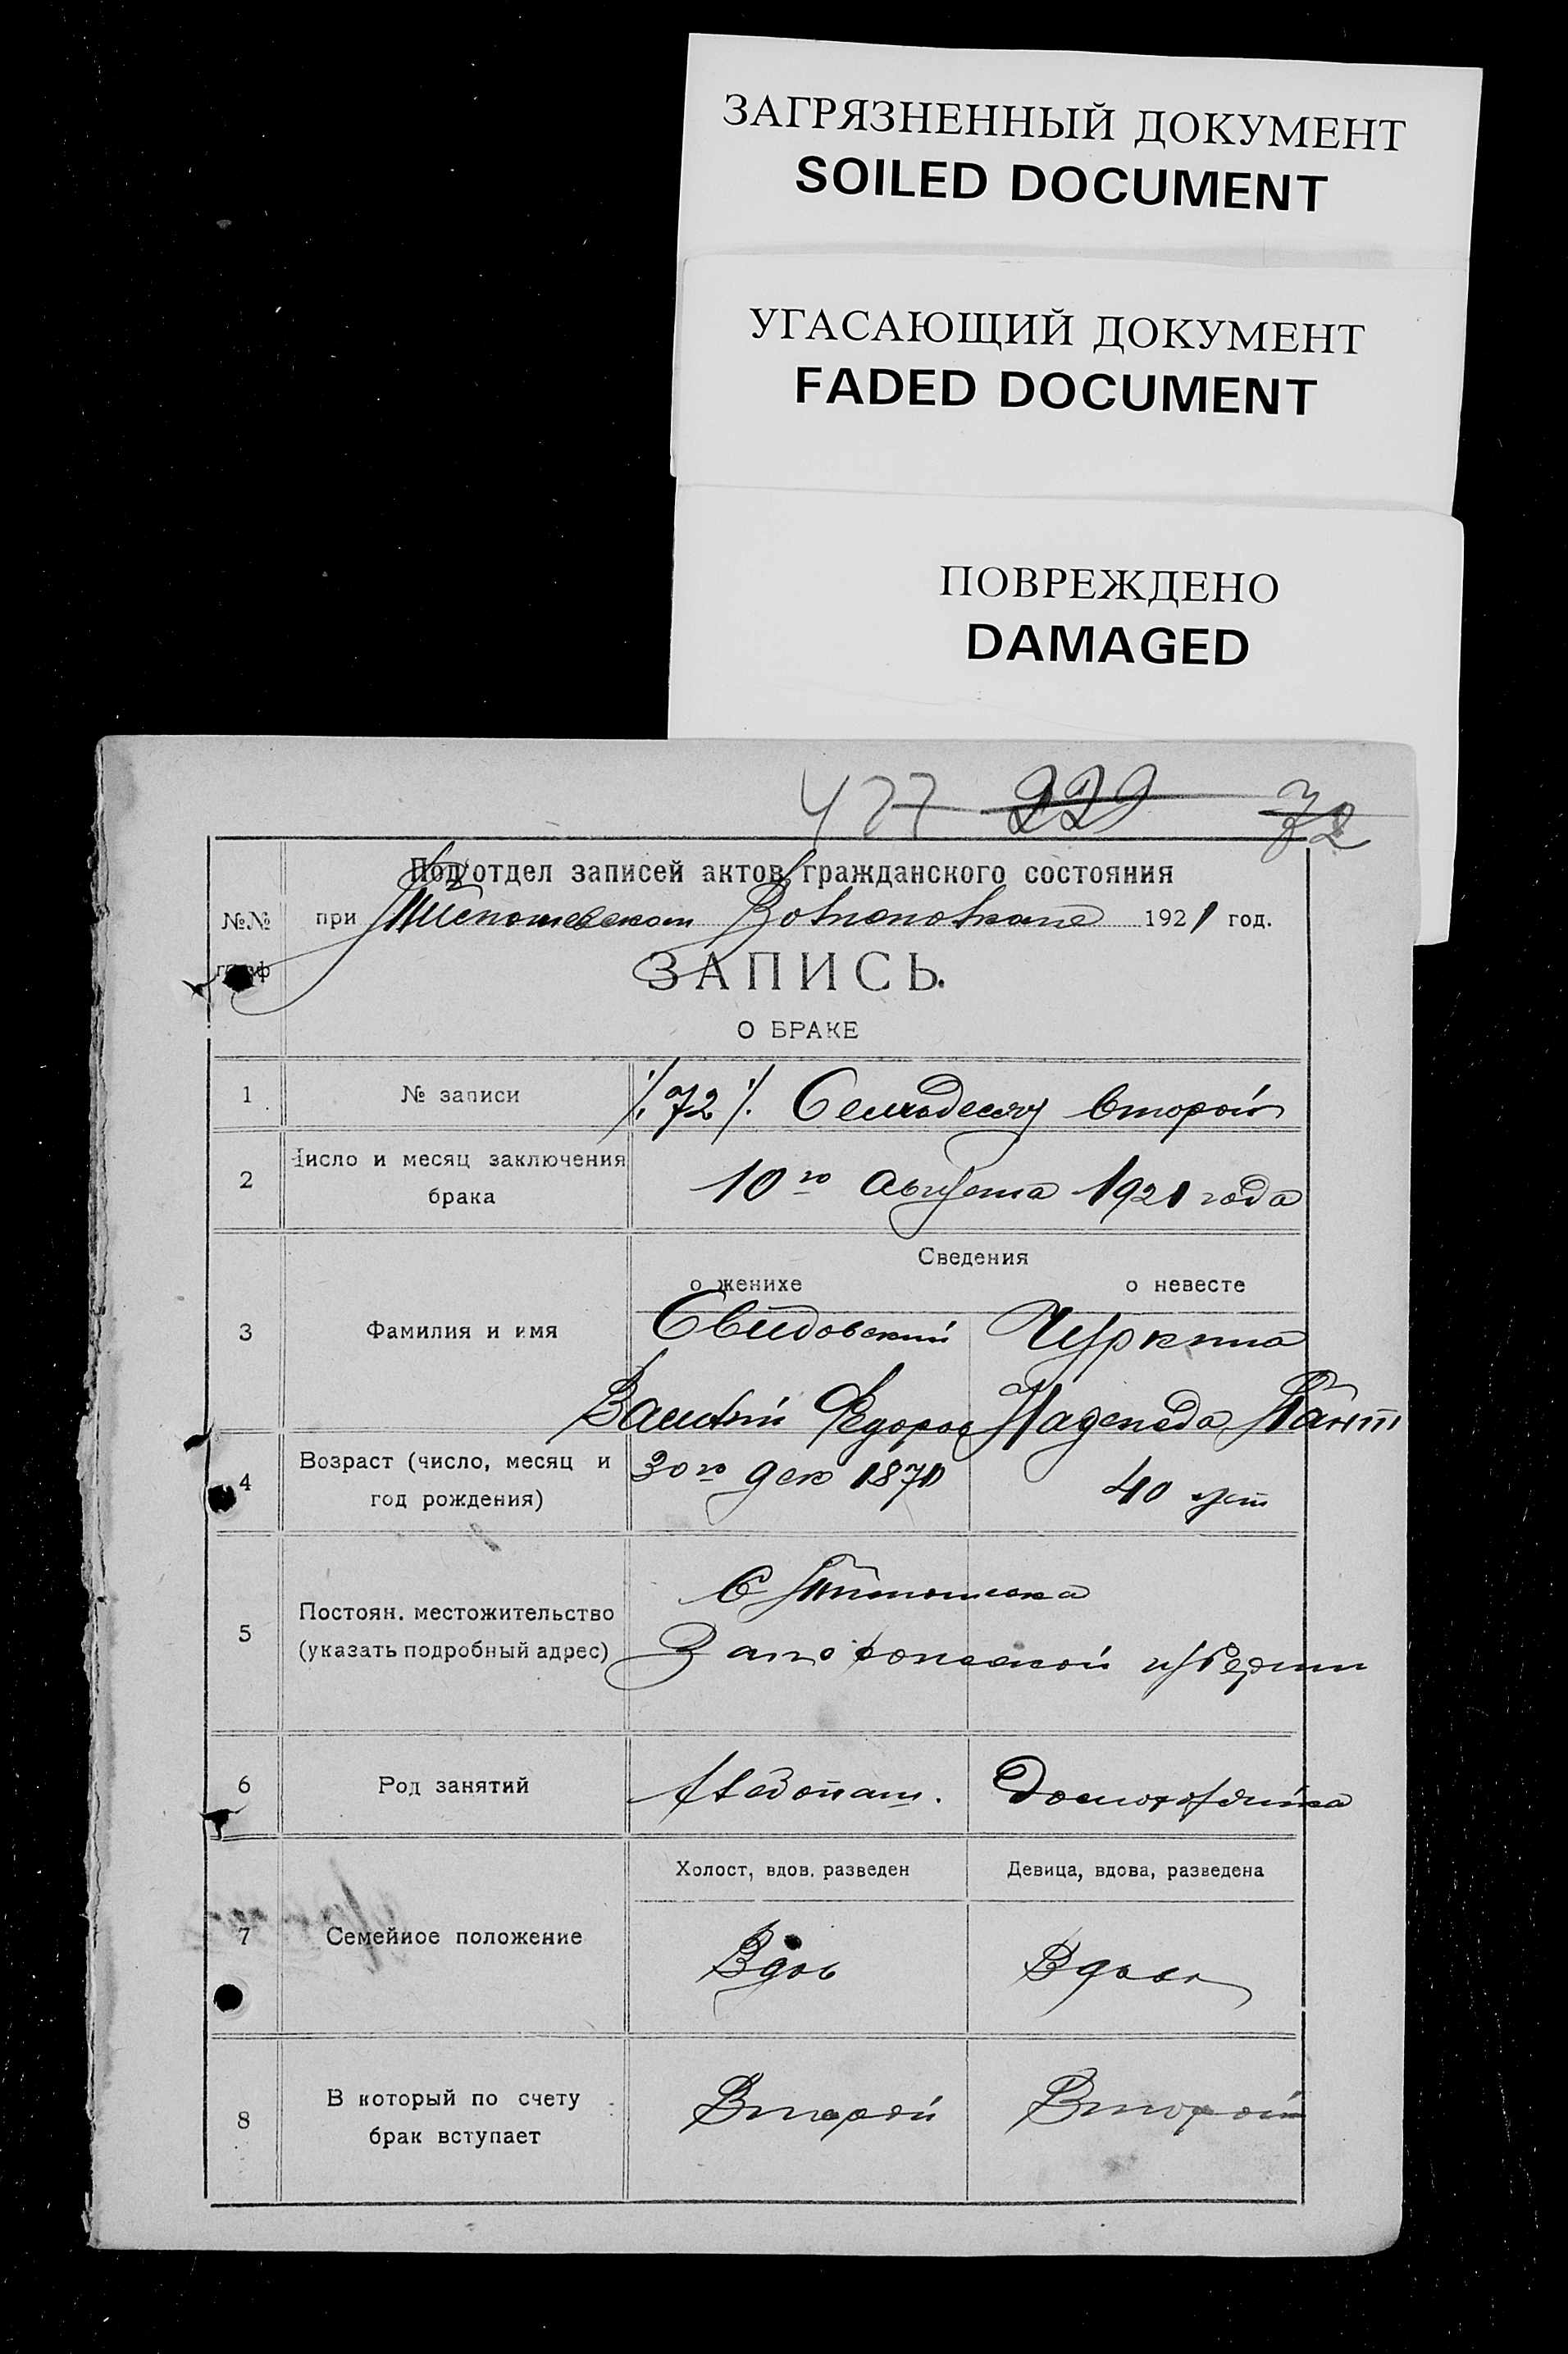 ЗАГРЯЗНЕННЫЙ ДОКУМЕНТ
SOILED DOCUMENT
УГАСАЮЩИЙ ДОКУМЕНТ
FADED DOCUMENT
ПОВРЕЖДЕНО
DAMAGED
477 229 72
Подотдел записей актов гражданского состояния
№№ при 1921 год.
граф
ЗАПИСЬ
О БРАКЕ
1 № записи 72 Семьдесят второй
2 Число и месяц заключения
брака 10го Августа 1921 года
Сведения
о женихе о невесте
3 Фамилия и имя Свидовский Чуркина
Федоров Надежда
4 Возраст (число, месяц и
год рождения) 30го дек 1871 40 лет
5 Постоян. местожительство
(указать подробный адрес)
С
Запорожской губернии
6 Род занятий Хлебопаш. Домохозяйка
Холост, вдов, разведен Девица, вдова, разведена
7 Семейное положение Вдов Вдова
8 В который по счету
брак вступает Второй Второй